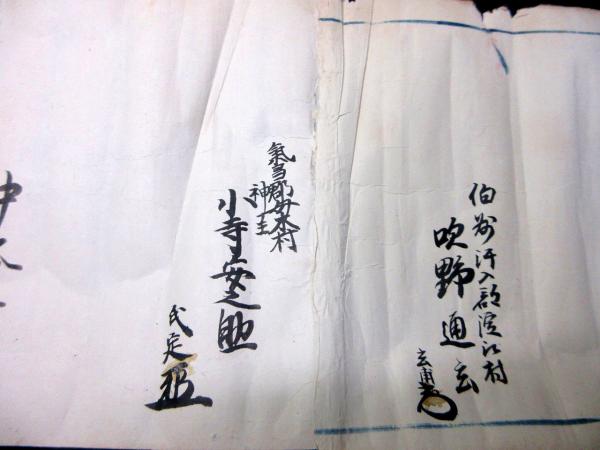 伯州汗入郡淀江村
吹野通玄
玄甫
氣多郡母木村
神主
小寺安之助
民定